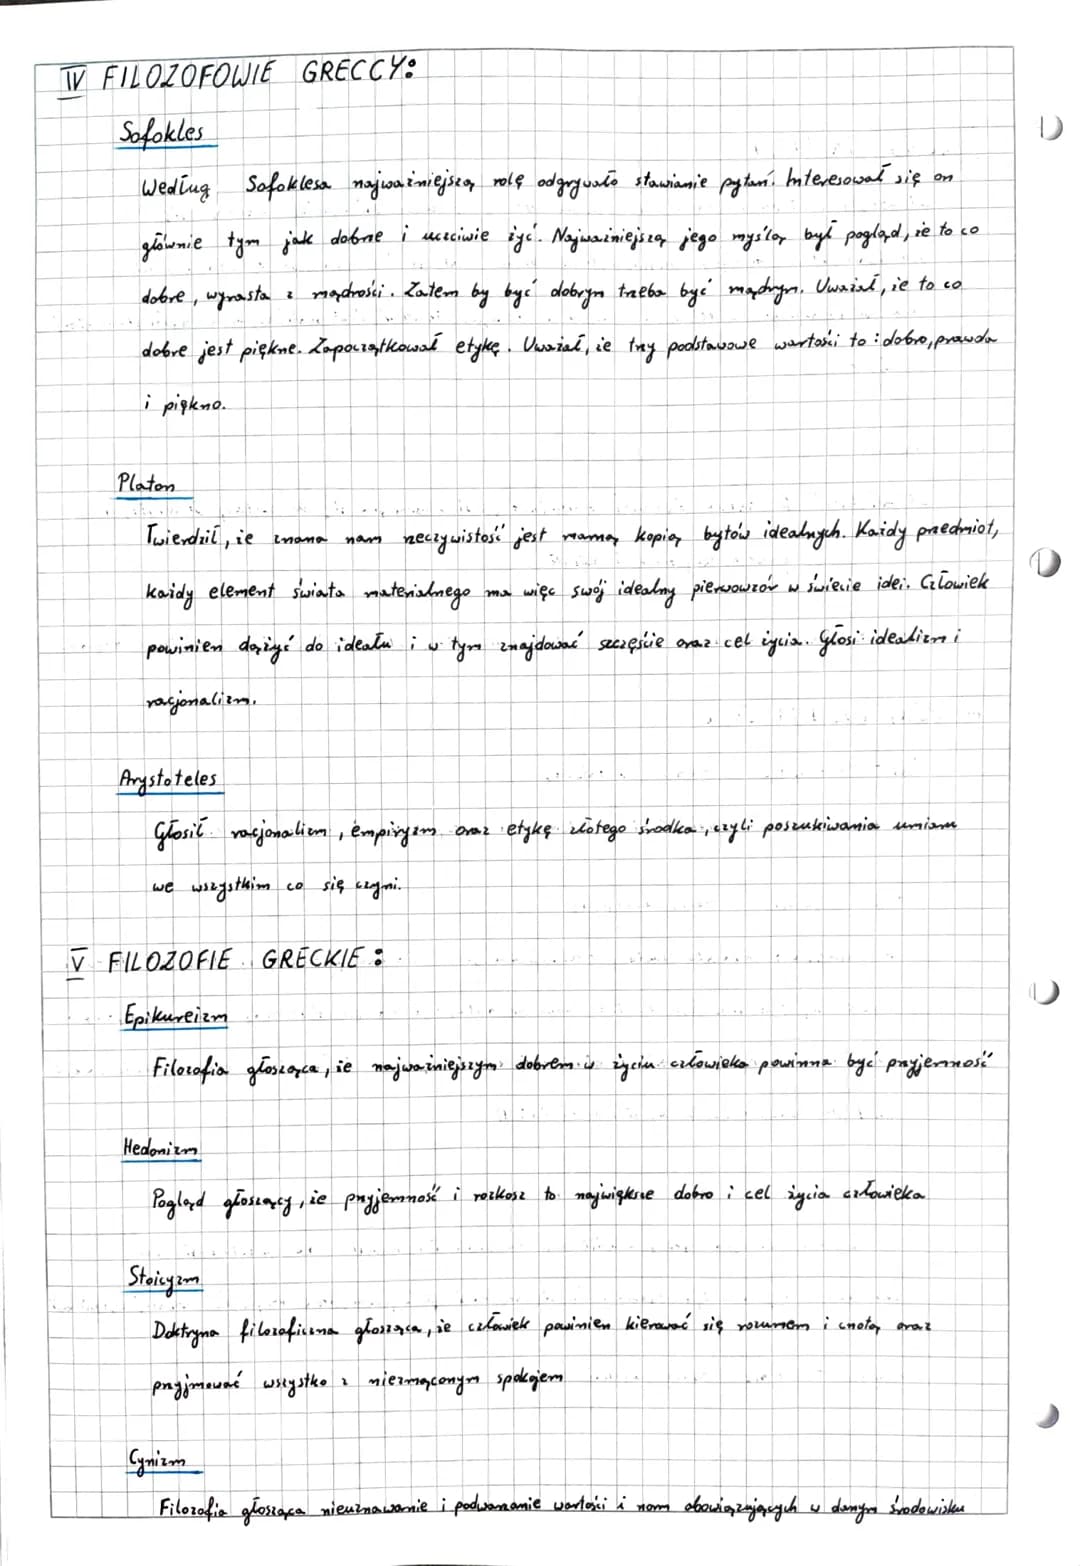 IV FILOZOFOWIE GRECCY:
Sofokles
Według Sofoklesa najważniejszą rolę odgrywało stawianie pytań. Interesował się on
głównie tym jak dobrze i uczciwie żyć. Najważniejszą jego myślą był pogląd, że to co
dobre, wyrasta z mądrości. Zatem by być dobrym trzeba być mądrym. Uważał, że to co
dobre jest piękne. Zapoczątkował etykę. Uważał, że trzy podstawowe wartości to: dobro, prawda
i piękno.
Platon
Twierdził, że znana nam rzeczywistość jest marną kopią bytów idealnych. Każdy przedmiot,
każdy element świata materialnego ma więc swój idealny pierwowzór w świecie idei. Człowiek
powinien dążyć do ideału i w tym znajdować szczęście oraz cel życia. Głosi idealizm i
racjonalizm.
Arystoteles
Głosił racjonalizm, empiryzm oraz etykę złotego środka, czyli poszukiwania umiaru
we wszystkim co się czyni.
V FILOZOFIE GRECKIE:
Epikureizm
Filozofia głosząca, że najważniejszym dobrem w życiu człowieka powinna być przyjemność
Hedonizm
Pogląd głoszący, że przyjemność i rozkosz to największe dobro i cel życia człowieka
Stoicyzm
Doktryna filozoficzna głosząca, że człowiek powinien kierować się rozumem i cnotą oraz
przyjmować wszystko z niezmąconym spokojem
Cynizm
Filozofia głosząca nieuznawanie i podważanie wartości i norm obowiązujących w danym środowisku